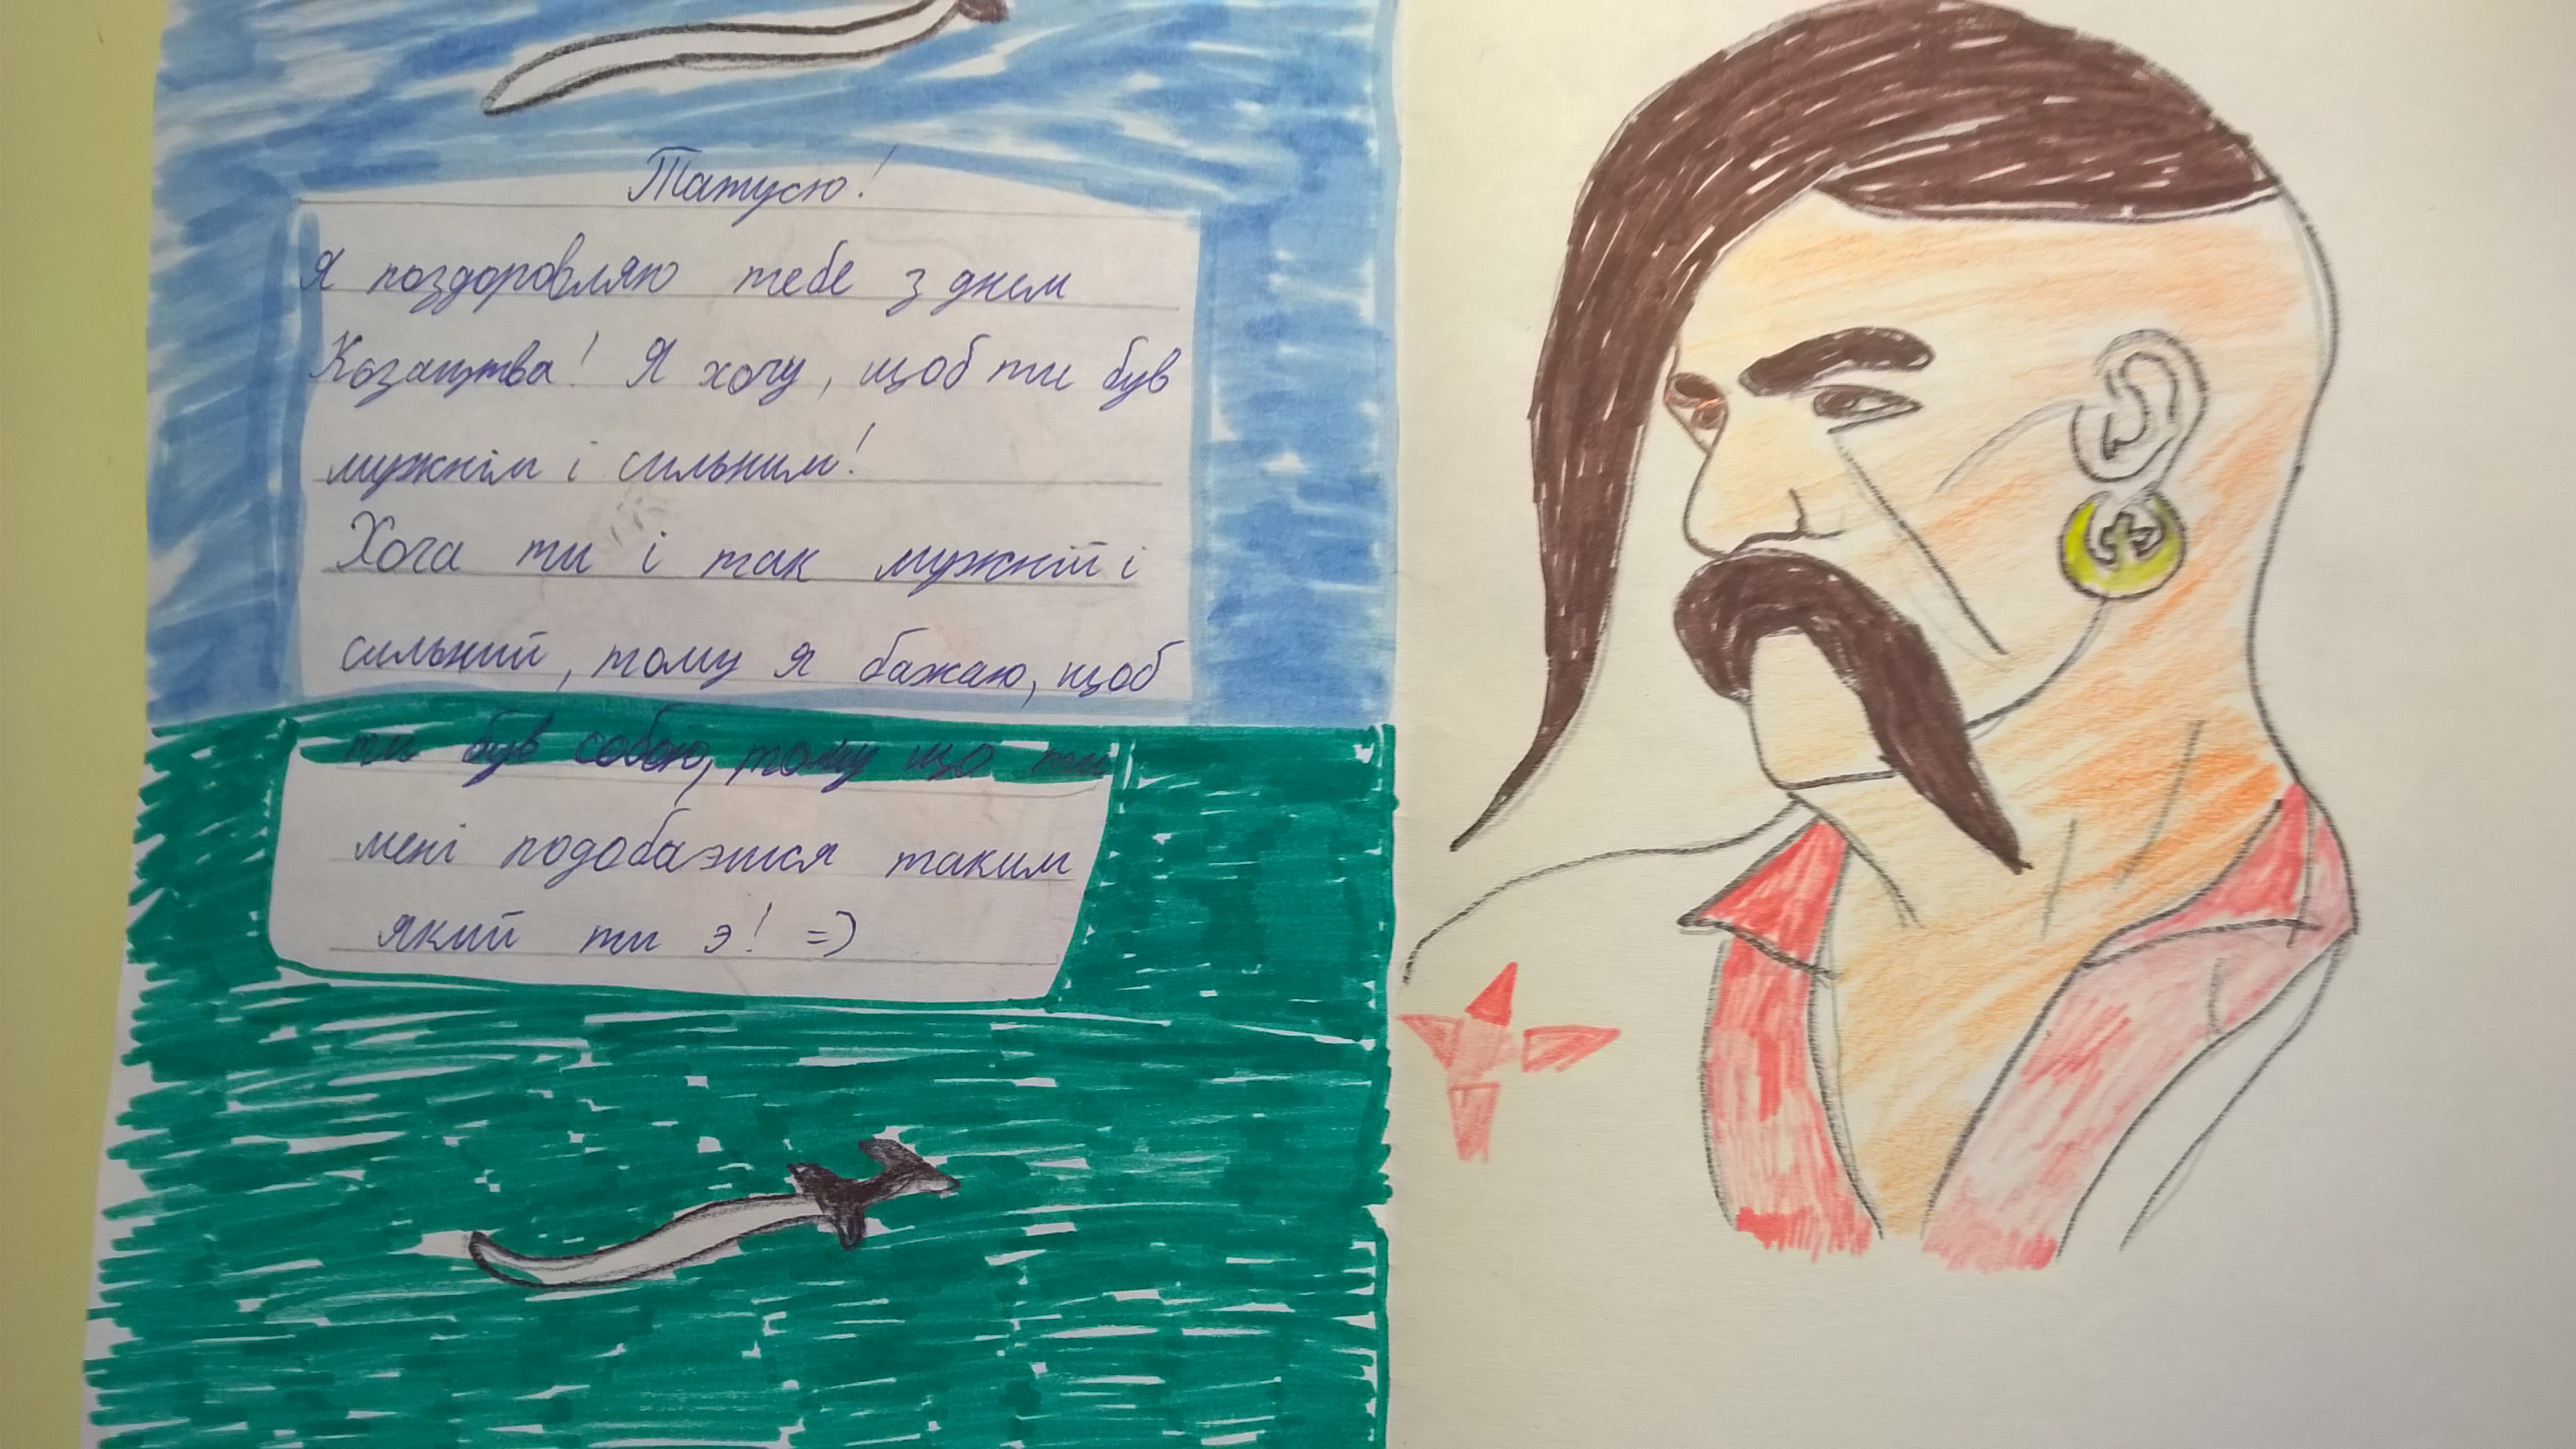 Татусю!
Я поздоровляю тебе з днем
Козацтва! Я хочу, щоб ти був
мужнім і сильним!
Хоча ти і так мужній і
сильний, тому я бажаю, щоб
ти був собою, тому що ти
мені подобаэшся таким
який ти э! =)